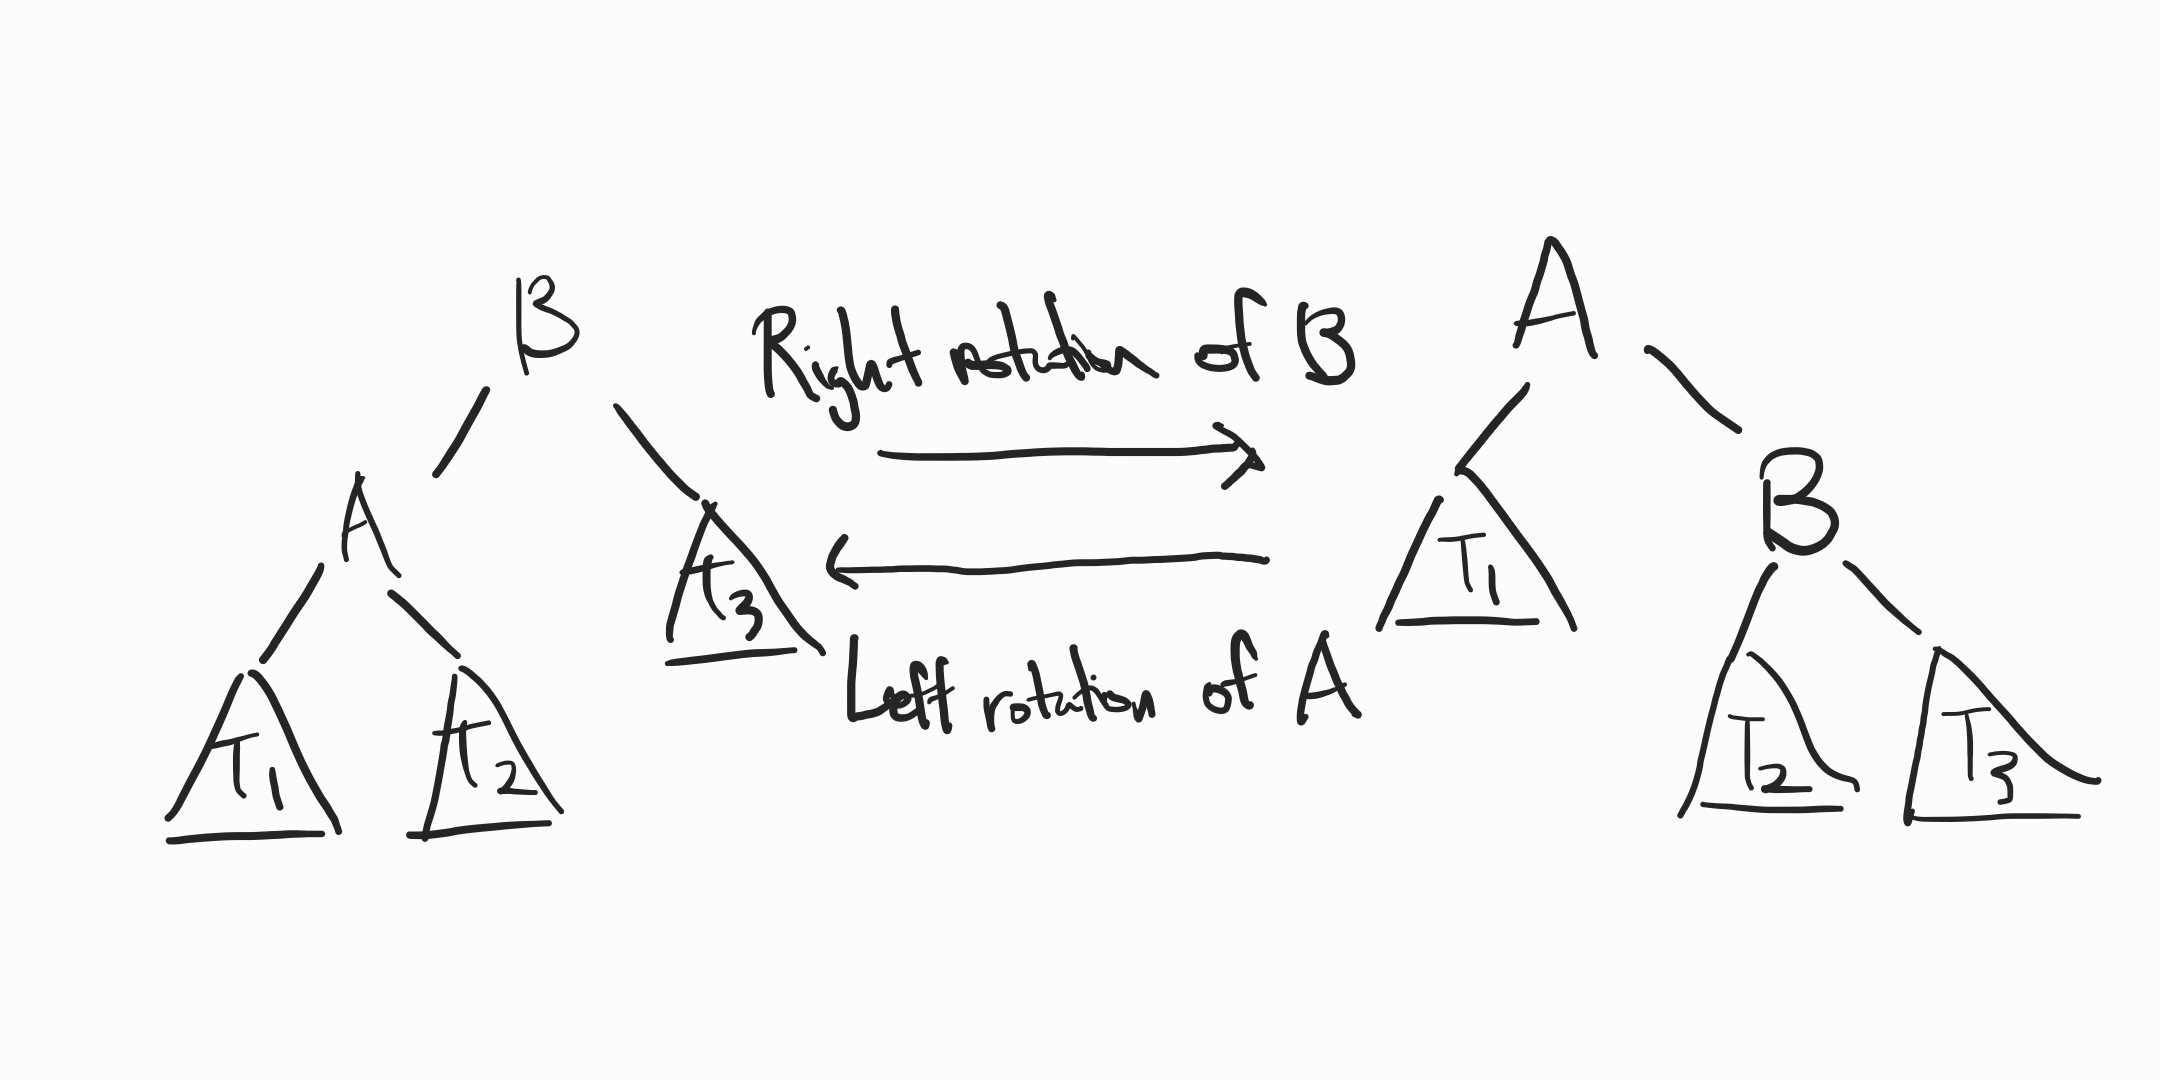 B
A
T1
T2
T3
Right rotation of B
Left rotation of A
A
T1
B
T2
T3